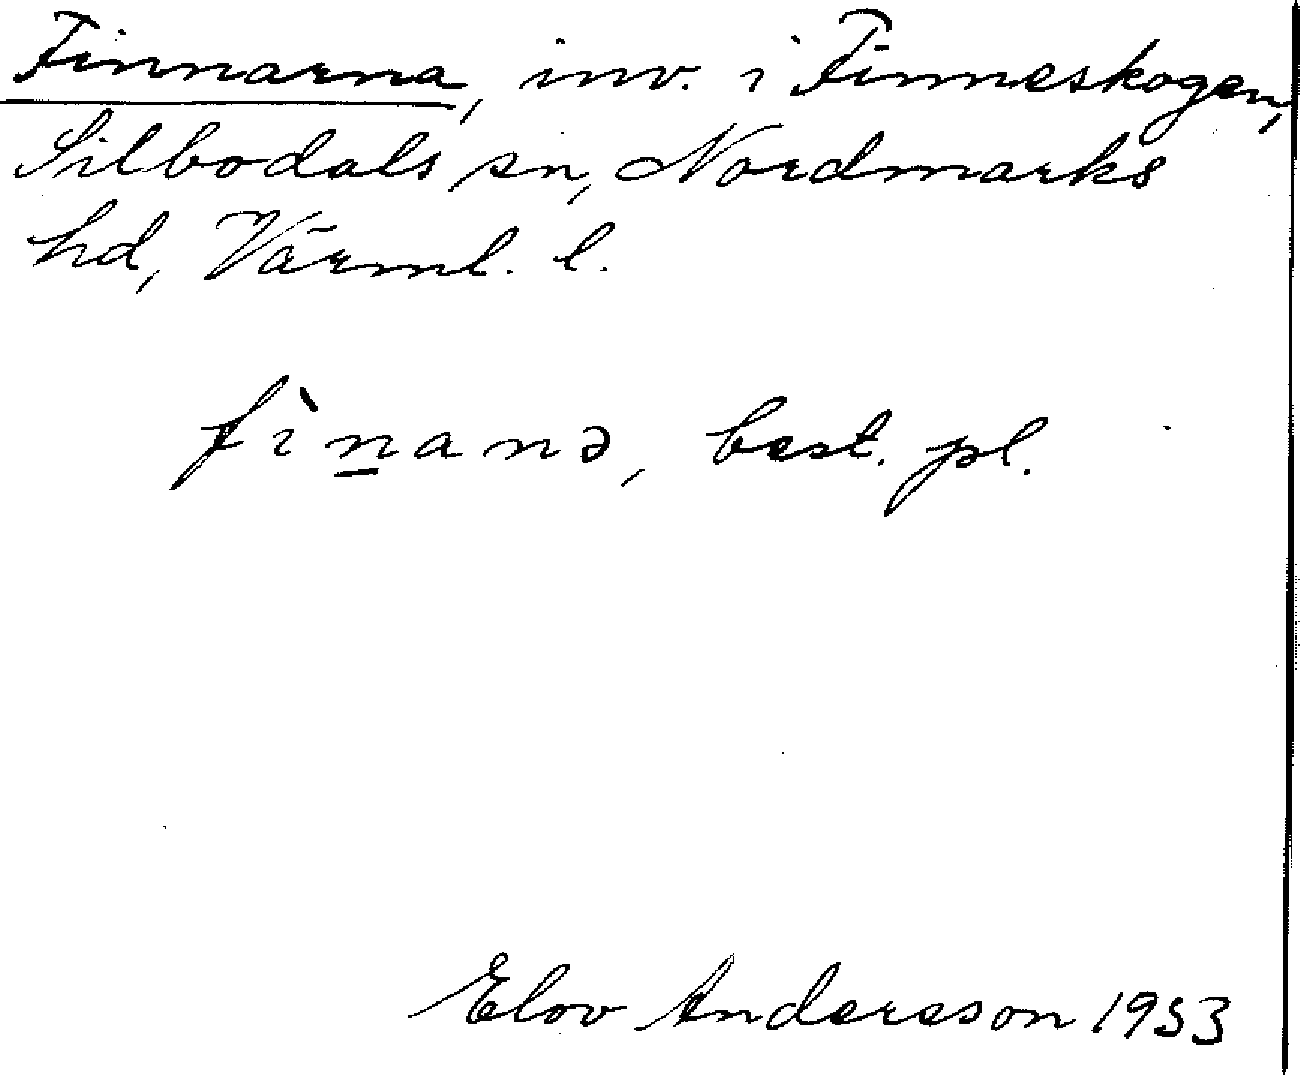 Finnarna, inv. i Finneskogen,
Silbodals sn, Nordmarks
hd, Värml. l.
fìn̲anə, best. pl.
Elov Andersson 1953